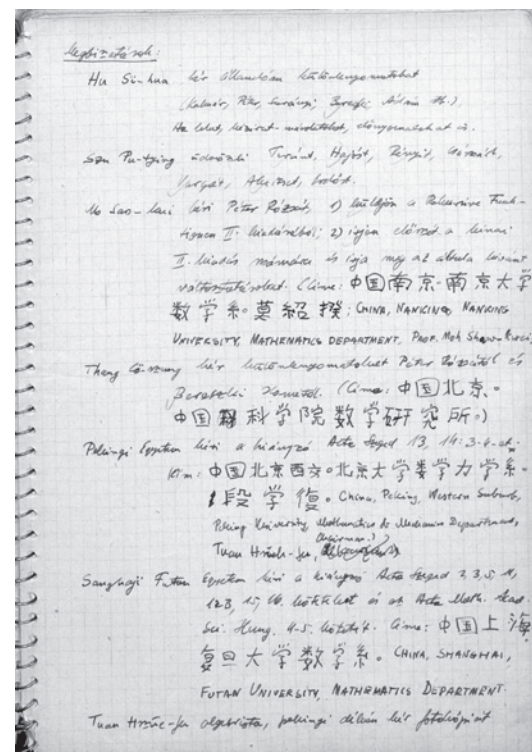 Megbízatások:
Hu Si-hua kér állandóan különlenyomatokat
(Kalmár, Péter, Surányi, Ádám stb.).
Ha lehet, kézirat-másolatokat, előnyomatokat is.
Szu Pu-tying üdvözli Turánt, Hajóst, Rényit,
Vargát, Alexitset,
Mo Sao-kui kéri Péter Rózsát, 1) küldjön a Rekursive Funk-
tionen II. kiadásából; 2) írjon előszót a kínai
II. kiadás számára és írja meg az általa kívánt
változtatásokat. (Címe: 中国南京-南京大学
数学系。莫紹揆; CHINA, NANKING, NANKING
UNIVERSITY, MATHEMATICS DEPARTMENT, PROF. Moh Shaw-Kwei)
kér különlenyomatokat Péter Rózsától és
(Címe: 中国北京。
中国科学院数学研究所。)
Pekingi Egyetem kéri a hiányzó Acta Szeged 13, 14: 3-4-et.
Cím: 中国北京西交。北京大学数学力学系。
段学復。China, Peking, Western Suburb,
Peking University, Mathematics & Mechanics Department,
Tuan Hsüeh-fu, (chairman.)
Sanghaji Futan Egyetem kéri a hiányzó Acta Szeged 2, 3, 5, 11,
12B, 15, 16. köteteket és az Acta Math. Acad.
Sci. Hung. 4-5. kötetét. Címe: 中国上海
复旦大学数学系。CHINA, SHANGHAI,
FUTAN UNIVERSITY, MATHEMATICS DEPARTMENT.
Tuan Hsüe-fu algebrista, pekingi dékán kér fotókópiát